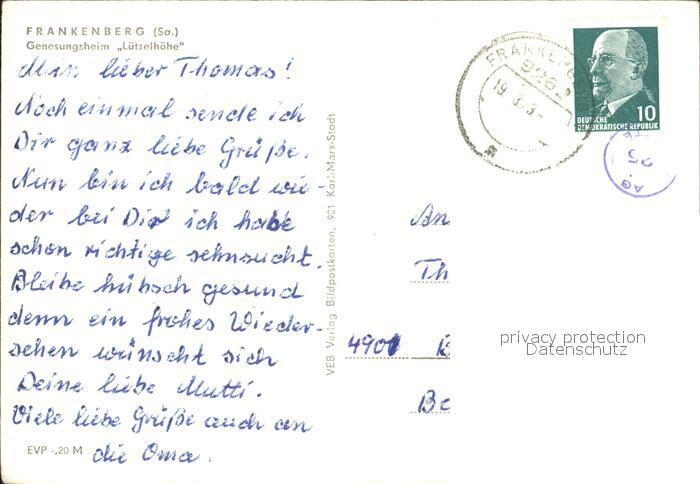 FRANKENBERG (Sa.)
Genesungsheim „Lützelhöhe"
Mein lieber Thomas!
Noch einmal sende ich
Dir ganz liebe Grüße.
Nun bin ich bald wie-
der bei Dir ich habe
schon richtige sehnsucht.
Bleibe hübsch gesund
denn ein frohes Wieder-
sehen wünscht sich
Deine liebe Mutti.
Viele liebe Grüße auch an
die Oma.
EVP -,20 M
VEB Verlag Bildpostkarten, 901 Karl-Marx-Stadt
FRANKENBE
DEUTSCHE
DEMOKRATISCHE REPUBLIK
10
25
An
Th
4901 B
Be
privacy protection
Datenschutz